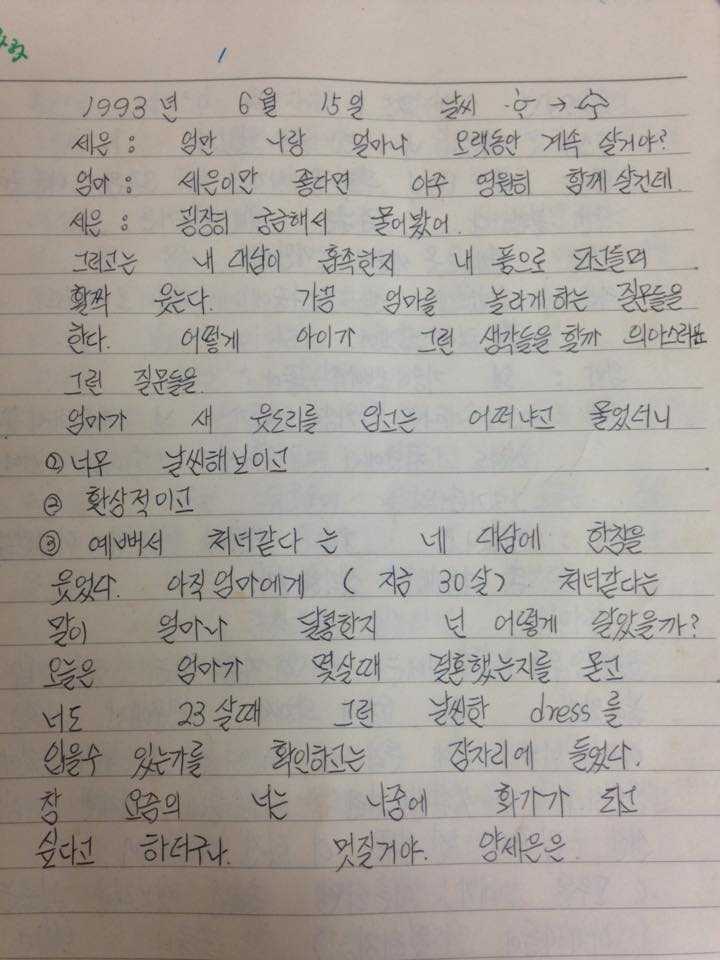 1
1993년 6월 15일 날씨 →
세은 : 엄만 나랑 얼마나 오랫동안 계속 살거야?
엄마 : 세은이만 좋다면 아주 영원히 함께 살건데.
세은 : 굉장히 궁금해서 물어봤어.
그러고는 내 대답이 흡족한지 내 품으로 파고들며
활짝 웃는다. 가끔 엄마를 놀라게 하는 질문들을
한다. 어떻게 아이가 그런 생각들을 할까 의아스러운
그런 질문들을.
엄마가 새 웃도리를 입고는 어떠냐고 물었더니
① 너무 날씬해보이고
② 환상적이고
③ 예뻐서 처녀같다 는 네 대답에 한참을
웃었다. 아직 엄마에게 (지금 30살) 처녀같다는
말이 얼마나 달콤한지 넌 어떻게 알았을까?
오늘은 엄마가 몇살때 결혼했는지를 묻고
너도 23살때 그런 날씬한 dress를
입을수 있는가를 확인하고는 잠자리에 들었다.
참 요즘의 너는 나중에 화가가 되고
싶다고 하더구나. 멋질거야. 양세은은.